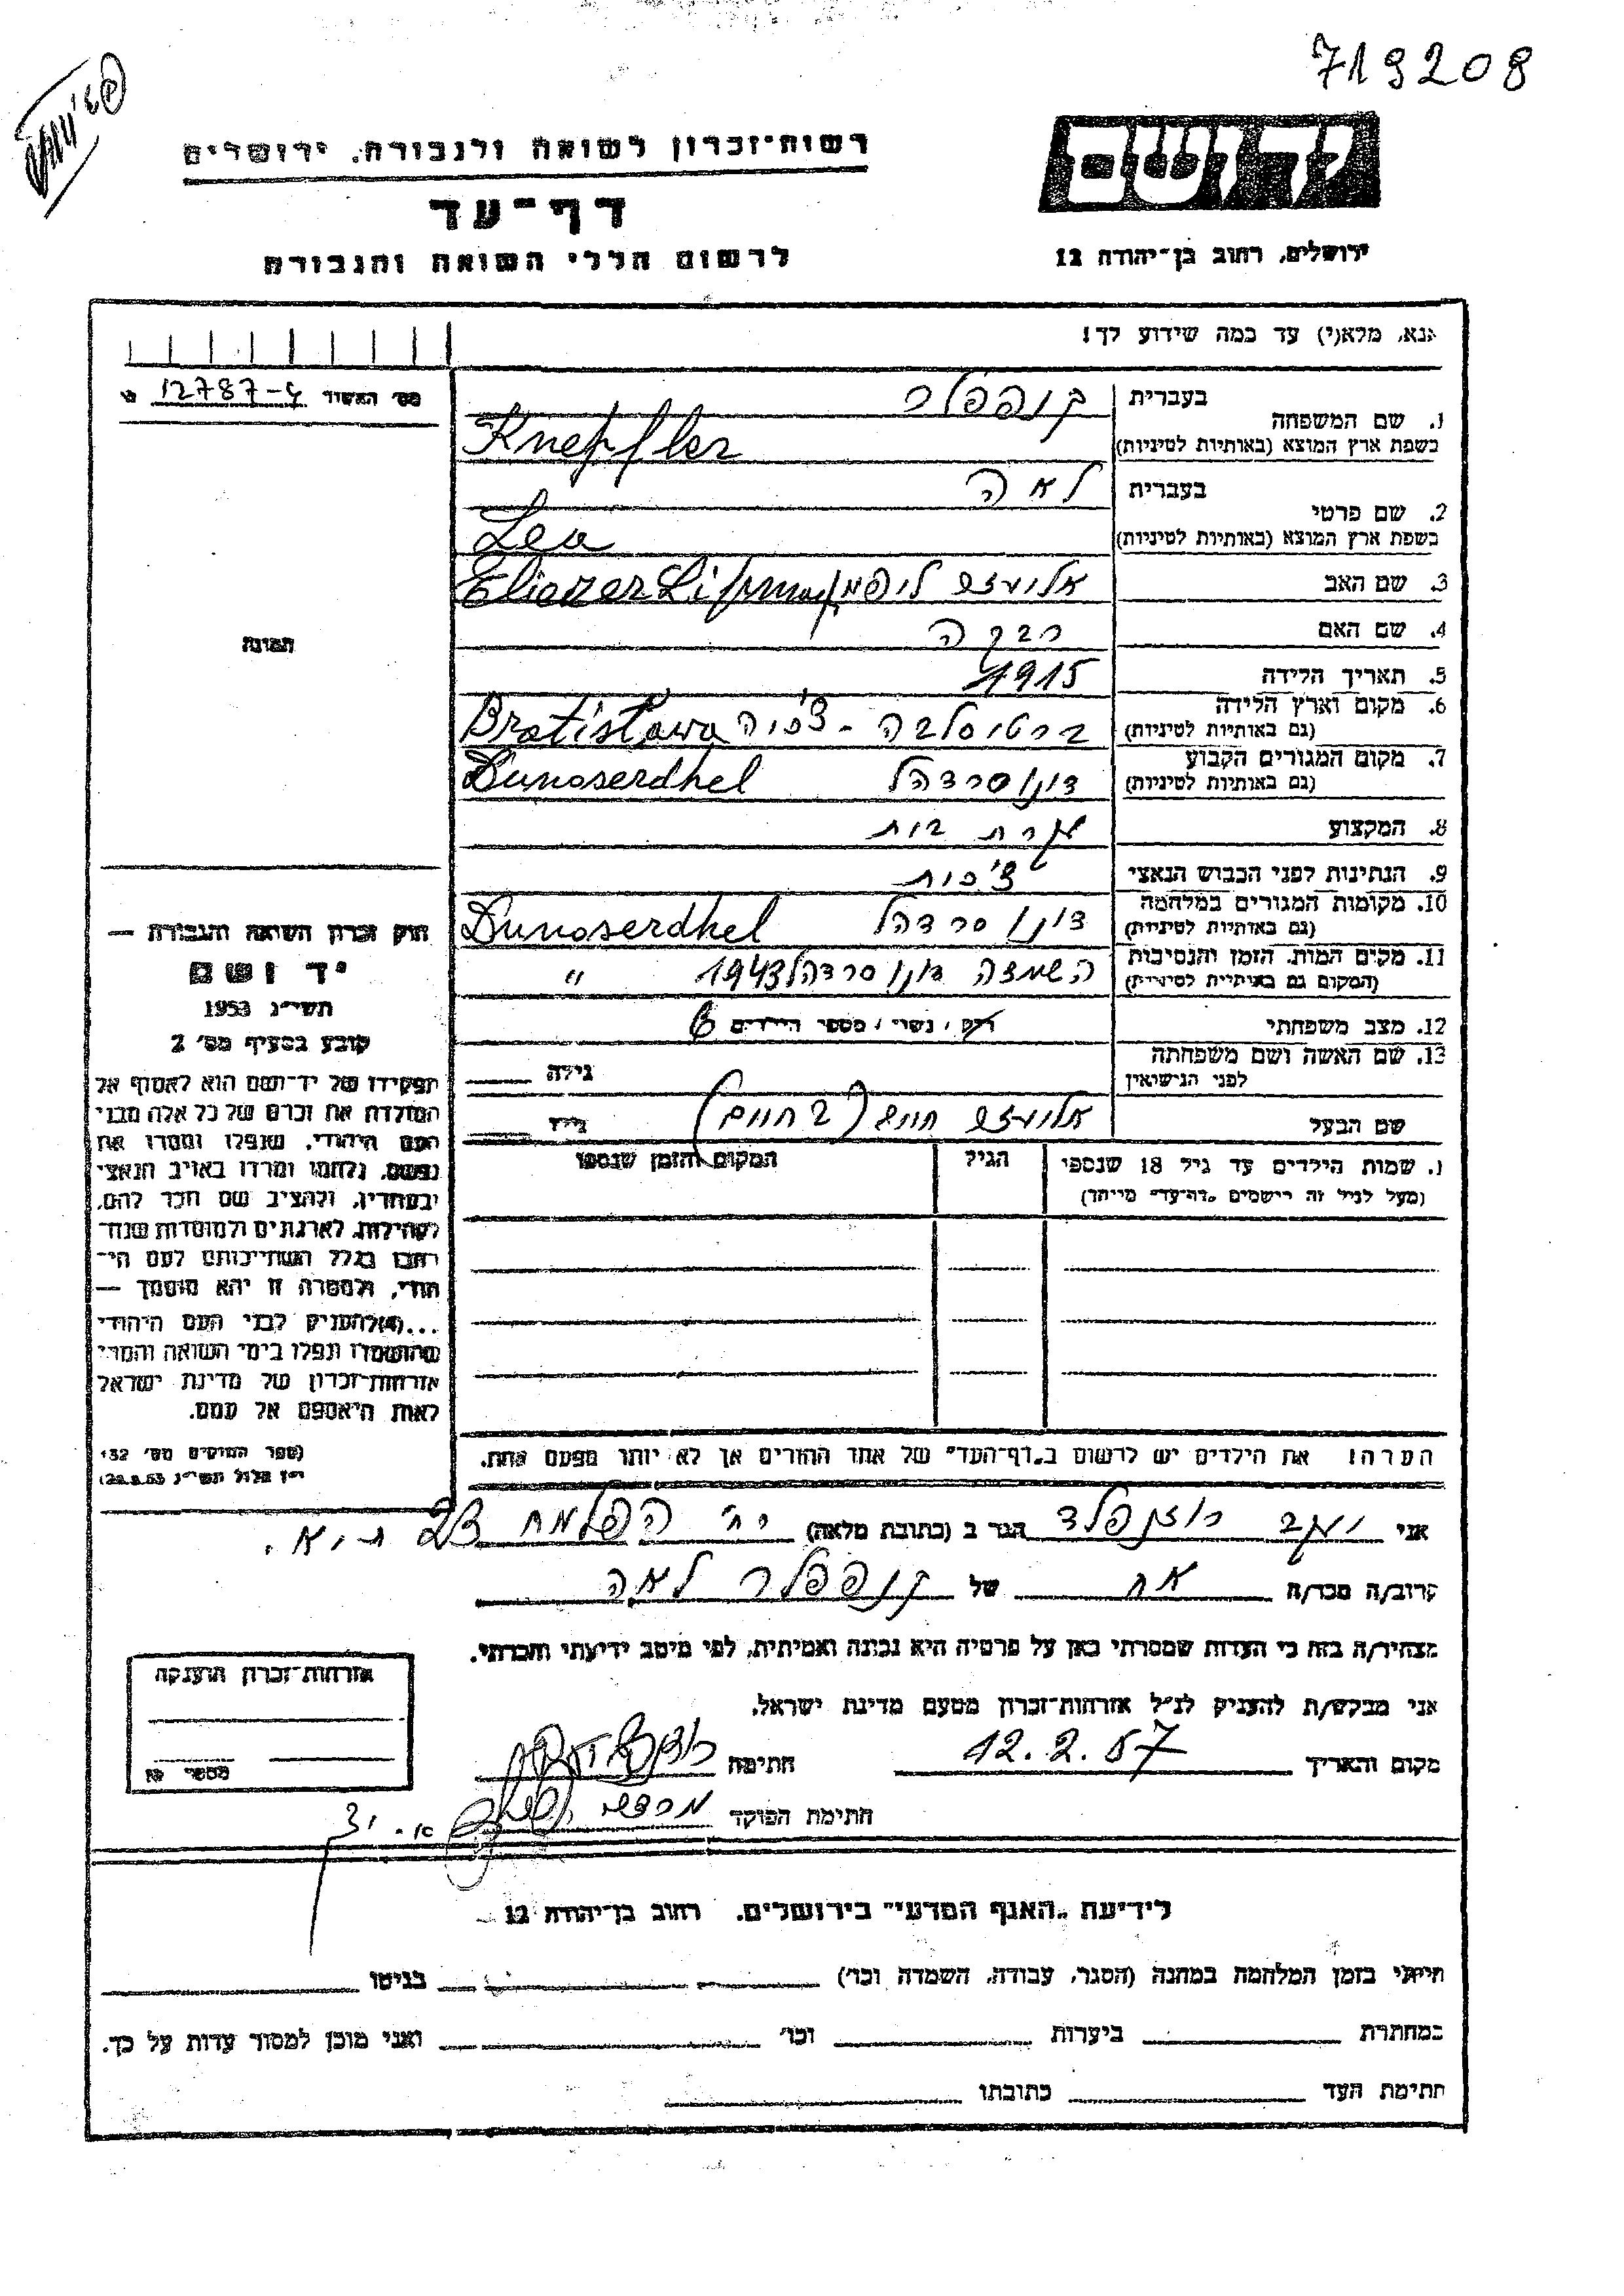 719208
רשות־זכרון לשואה ולגבורה, ירושלים
דף־עד
לרשום חללי השואה והגבורה
ירושלים, רחוב בן־יהודה 12
אנא, מלא(י) עד כמה שידוע לך!
מס׳ האשור 12787-4
1. שם המשפחה
בעברית קנפפלר
בשפת ארץ המוצא (באותיות לטיניות) Knepfler
2. שם פרטי
בעברית לאה
בשפת ארץ המוצא (באותיות לטיניות) Lea
3. שם האב אליעזר ליפמן Eliezer Lipman
4. שם האם רבקה
5. תאריך הלידה 1915
6. מקום וארץ הלידה (גם באותיות לטיניות) ברטיסלבה - צ׳כיה Bratislawa
7. מקום המגורים הקבוע (גם באותיות לטיניות) דונוסרדהל Dunaserdhel
8. המקצוע עקרת בית
9. הנתינות לפני הכבוש הנאצי צ׳כית
10. מקומות המגורים במלחמה (גם באותיות לטיניות) דונוסרדהל Dunoserdhel
11. מקום המות, הזמן והנסיבות (המקום גם באותיות לטיניות) השמדה דונוסרדהל 1943 "
12. מצב משפחתי רווק / נשוי / מספר הילדים 6
13. שם האשה ושם משפחתה לפני הנישואין גילה
שם הבעל אליעזר גילו
תמונה
שמות הילדים עד גיל 18 שנספו
(מעל לגיל זה רישמים "דף־עד" מיוחד)
הגיל
המקום והזמן שנספו
חוק זכרון השואה והגבורה —
יד ושם
תשי״ג 1953
קובע בסעיף מס׳ 2
תפקידו של יד־ושם הוא לאסוף אל
המולדת את זכרם של כל אלה מבני
העם היהודי, שנפלו ומסרו את
נפשם, נלחמו ומרדו באויב הנאצי
ובעוזריו, ולהציב שם וזכר להם,
לקהילות, לארגונים ולמוסדות שנח־
רבו בגלל השתייכותם לעם הי־
הודי, ולמטרה זו יהא מוסמך —
...(4) להעניק לבני העם היהודי
שהושמדו ונפלו בימי השואה והמרי
אזרחות־זכרון של מדינת ישראל
לאות היאספם אל עמם.
(ספר החוקים מס׳ 132
י״ז אלול תשי״ג 28.8.53)
הערה: את הילדים יש לרשום ב"דף־העד" של אחד ההורים אך לא יותר מפעם אחת.
אני יעקב רוזנפלד הגר ב (כתובת מלאה) רח׳ הפלמח 23 ת״א.
קרוב/ה מכר/ה אח של קנפפלר לאה
מצהיר/ה בזה כי העדות שמסרתי כאן על פרטיה היא נכונה ואמיתית, לפי מיטב ידיעתי והכרתי.
אני מבקש/ת להעניק לנ״ל אזרחות־זכרון מטעם מדינת ישראל.
מקום ותאריך 12.2.57 חתימה
חתימת הפוקד
אזרחות־זכרון הוענקה
מספר
לידיעת "האגף המדעי" בירושלים, רחוב בן־יהודה 12
הייתי בזמן המלחמה במחנה (הסגר, עבודה, השמדה וכו׳) בגיטו
במחתרת ביערות וכו׳ ואני מוכן למסור עדות על כך.
חתימת העד כתובתו